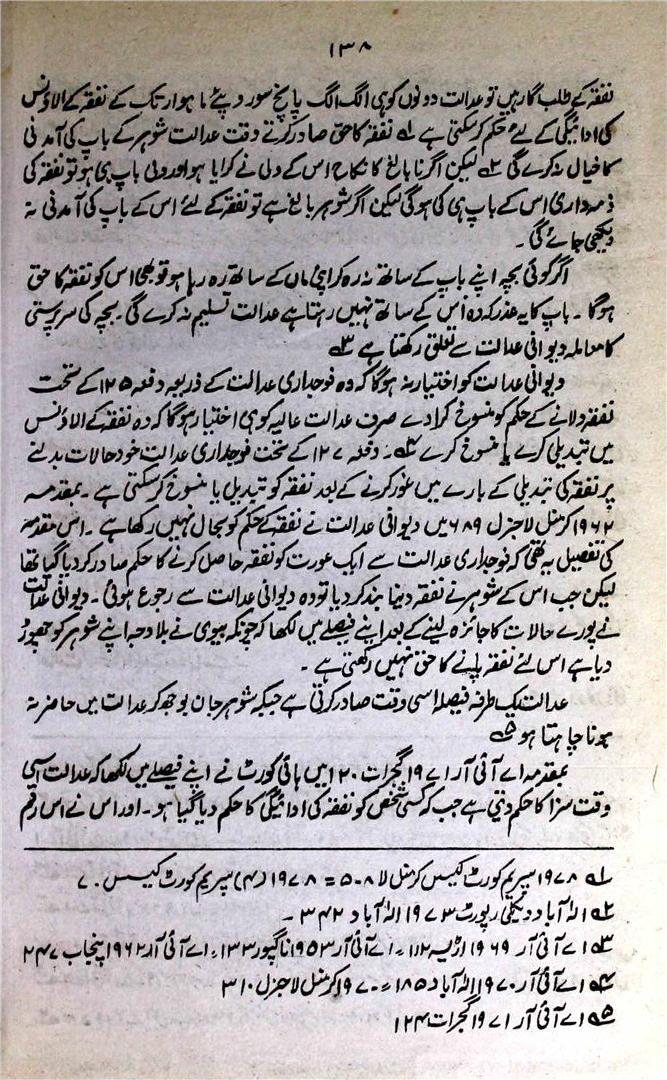 ۱۳۸
نفقہ کے طلب گار ہیں تو عدالت دونوں کو ہی الگ الگ پانچ سو روپئے ماہوار تک کے نفقہ کے الاؤنس
کی ادائیگی کے لئے حکم کر سکتی ہے ۱؎ نفقہ کا حق صادر کرتے وقت عدالت شوہر کے باپ کی آمدنی
کا خیال نہ کرے گی ۲؎ لیکن اگر نابالغ کا نکاح اس کے ولی نے کرایا ہو اور ولی باپ ہی ہو تو نفقہ کی
ذمہ داری اس کے باپ ہی کی ہوگی لیکن اگر شوہر بالغ ہے تو نفقہ کے لئے اس کے باپ کی آمدنی نہ
دیکھی جائے گی۔
اگر کوئی بچہ اپنے باپ کے ساتھ نہ رہ کر اپنی ماں کے ساتھ رہ رہا ہو تو بھی اس کو نفقہ کا حق
ہوگا۔ باپ کا یہ عذر کہ وہ اس کے ساتھ نہیں رہتا ہے عدالت تسلیم نہ کرے گی۔ بچہ کی سرپرستی
کا معاملہ دیوانی عدالت سے تعلق رکھتا ہے ۳؎
دیوانی عدالت کو اختیار نہ ہوگا کہ وہ فوجداری عدالت کے ذریعہ دفعہ ۱۲۵ کے تحت
نفقہ دلانے کے حکم کو منسوخ کرا دے صرف عدالت عالیہ کو ہی اختیار ہوگا کہ وہ نفقہ کے الاؤنس
میں تبدیلی کرے یا منسوخ کرے ۴؎۔ دفعہ ۱۲۷ کے تحت فوجداری عدالت خود حالات بدلنے
پر نفقہ کی تبدیلی کے بارے میں غور کرنے کے بعد نفقہ کو تبدیل یا منسوخ کر سکتی ہے۔ بمقدمہ
۱۹۶۲ کرمنل لا جرنل ۶۸۹ میں دیوانی عدالت نے نفقہ کے حکم کو بحال نہیں رکھا ہے۔ اس مقدمہ
کی تفصیل یہ تھی کہ فوجداری عدالت سے ایک عورت کو نفقہ حاصل کرنے کا حکم صادر کر دیا گیا تھا
لیکن جب اس کے شوہر نے نفقہ دینا بند کر دیا تو وہ دیوانی عدالت سے رجوع ہوئی۔ دیوانی عدالت
نے پورے حالات کا جائزہ لینے کے بعد اپنے فیصلے میں لکھا کہ چونکہ بیوی نے بلا وجہ اپنے شوہر کو چھوڑ
دیا ہے اس لئے نفقہ پانے کا حق نہیں رکھتی ہے۔
عدالت یک طرفہ فیصلہ اسی وقت صادر کرتی ہے جبکہ شوہر جان بوجھ کر عدالت میں حاضر نہ
ہونا چاہتا ہو ۵؎
بمقدمہ اے آئی آر ۱۹۷۱ گجرات ۱۲۰ میں ہائی کورٹ نے اپنے فیصلے میں لکھا کہ عدالت اسی
وقت سزا کا حکم دیتی ہے جب کہ کسی شخص کو نفقہ کی ادائیگی کا حکم دیا گیا ہو۔ اور اس نے اس رقم
۱؎ ۱۹۷۸ سپریم کورٹ کیس کرمنل لا ۵۰۸ = ۱۹۷۸ (۴) سپریم کورٹ کیس ۷۰
۲؎ الہٰ آباد ویکلی رپورٹ ۱۹۷۳ الہٰ آباد ۳۴۲۔
۳؎ اے آئی آر ۱۹۶۹ اڑیسہ ۱۱۲، اے آئی آر ۱۹۵۳ ناگپور ۱۳۳، اے آئی آر ۱۹۶۲ پنجاب ۲۴۷
۴؎ اے آئی آر ۱۹۷۰ الہٰ آباد ۱۸۵ = ۱۹۷۰ کرمنل لا جرنل ۳۱۰
۵؎ اے آئی آر ۱۹۷۱ گجرات ۱۲۴